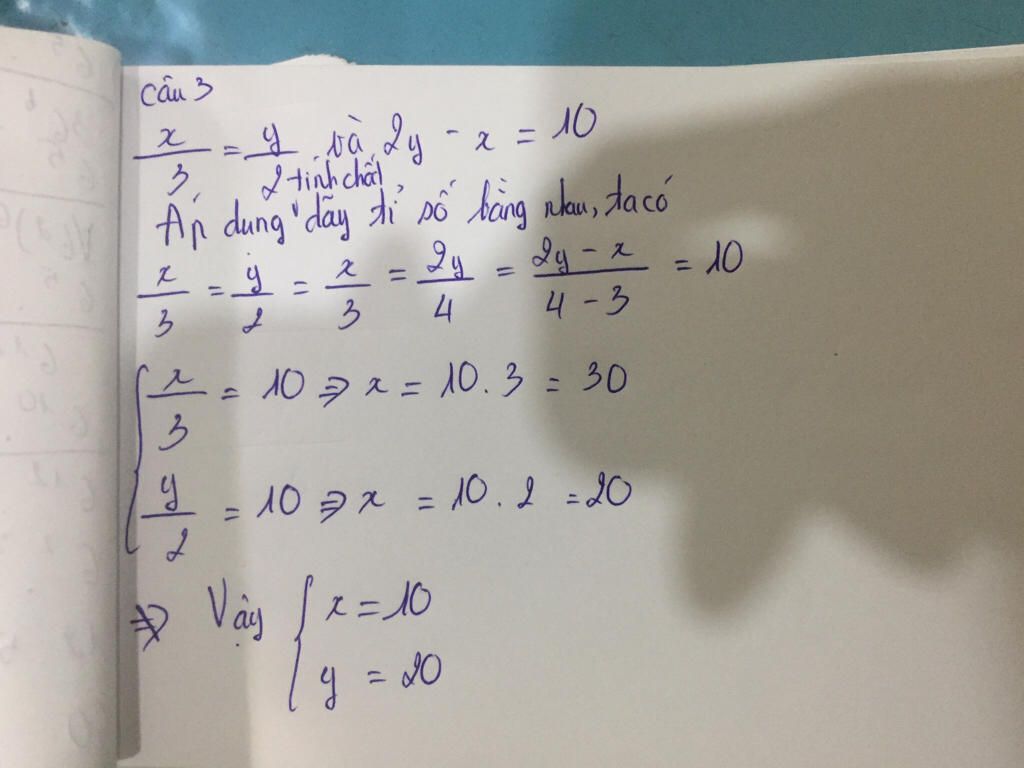 Câu 3
x/3 = y/2 và 2y - x = 10
Áp dụng tính chất dãy tỉ số bằng nhau, ta có
x/3 = y/2 = x/3 = 2y/4 = (2y - x)/(4 - 3) = 10
{ x/3 = 10 => x = 10 . 3 = 30
y/2 = 10 => x = 10 . 2 = 20
=> Vậy { x = 10
y = 20